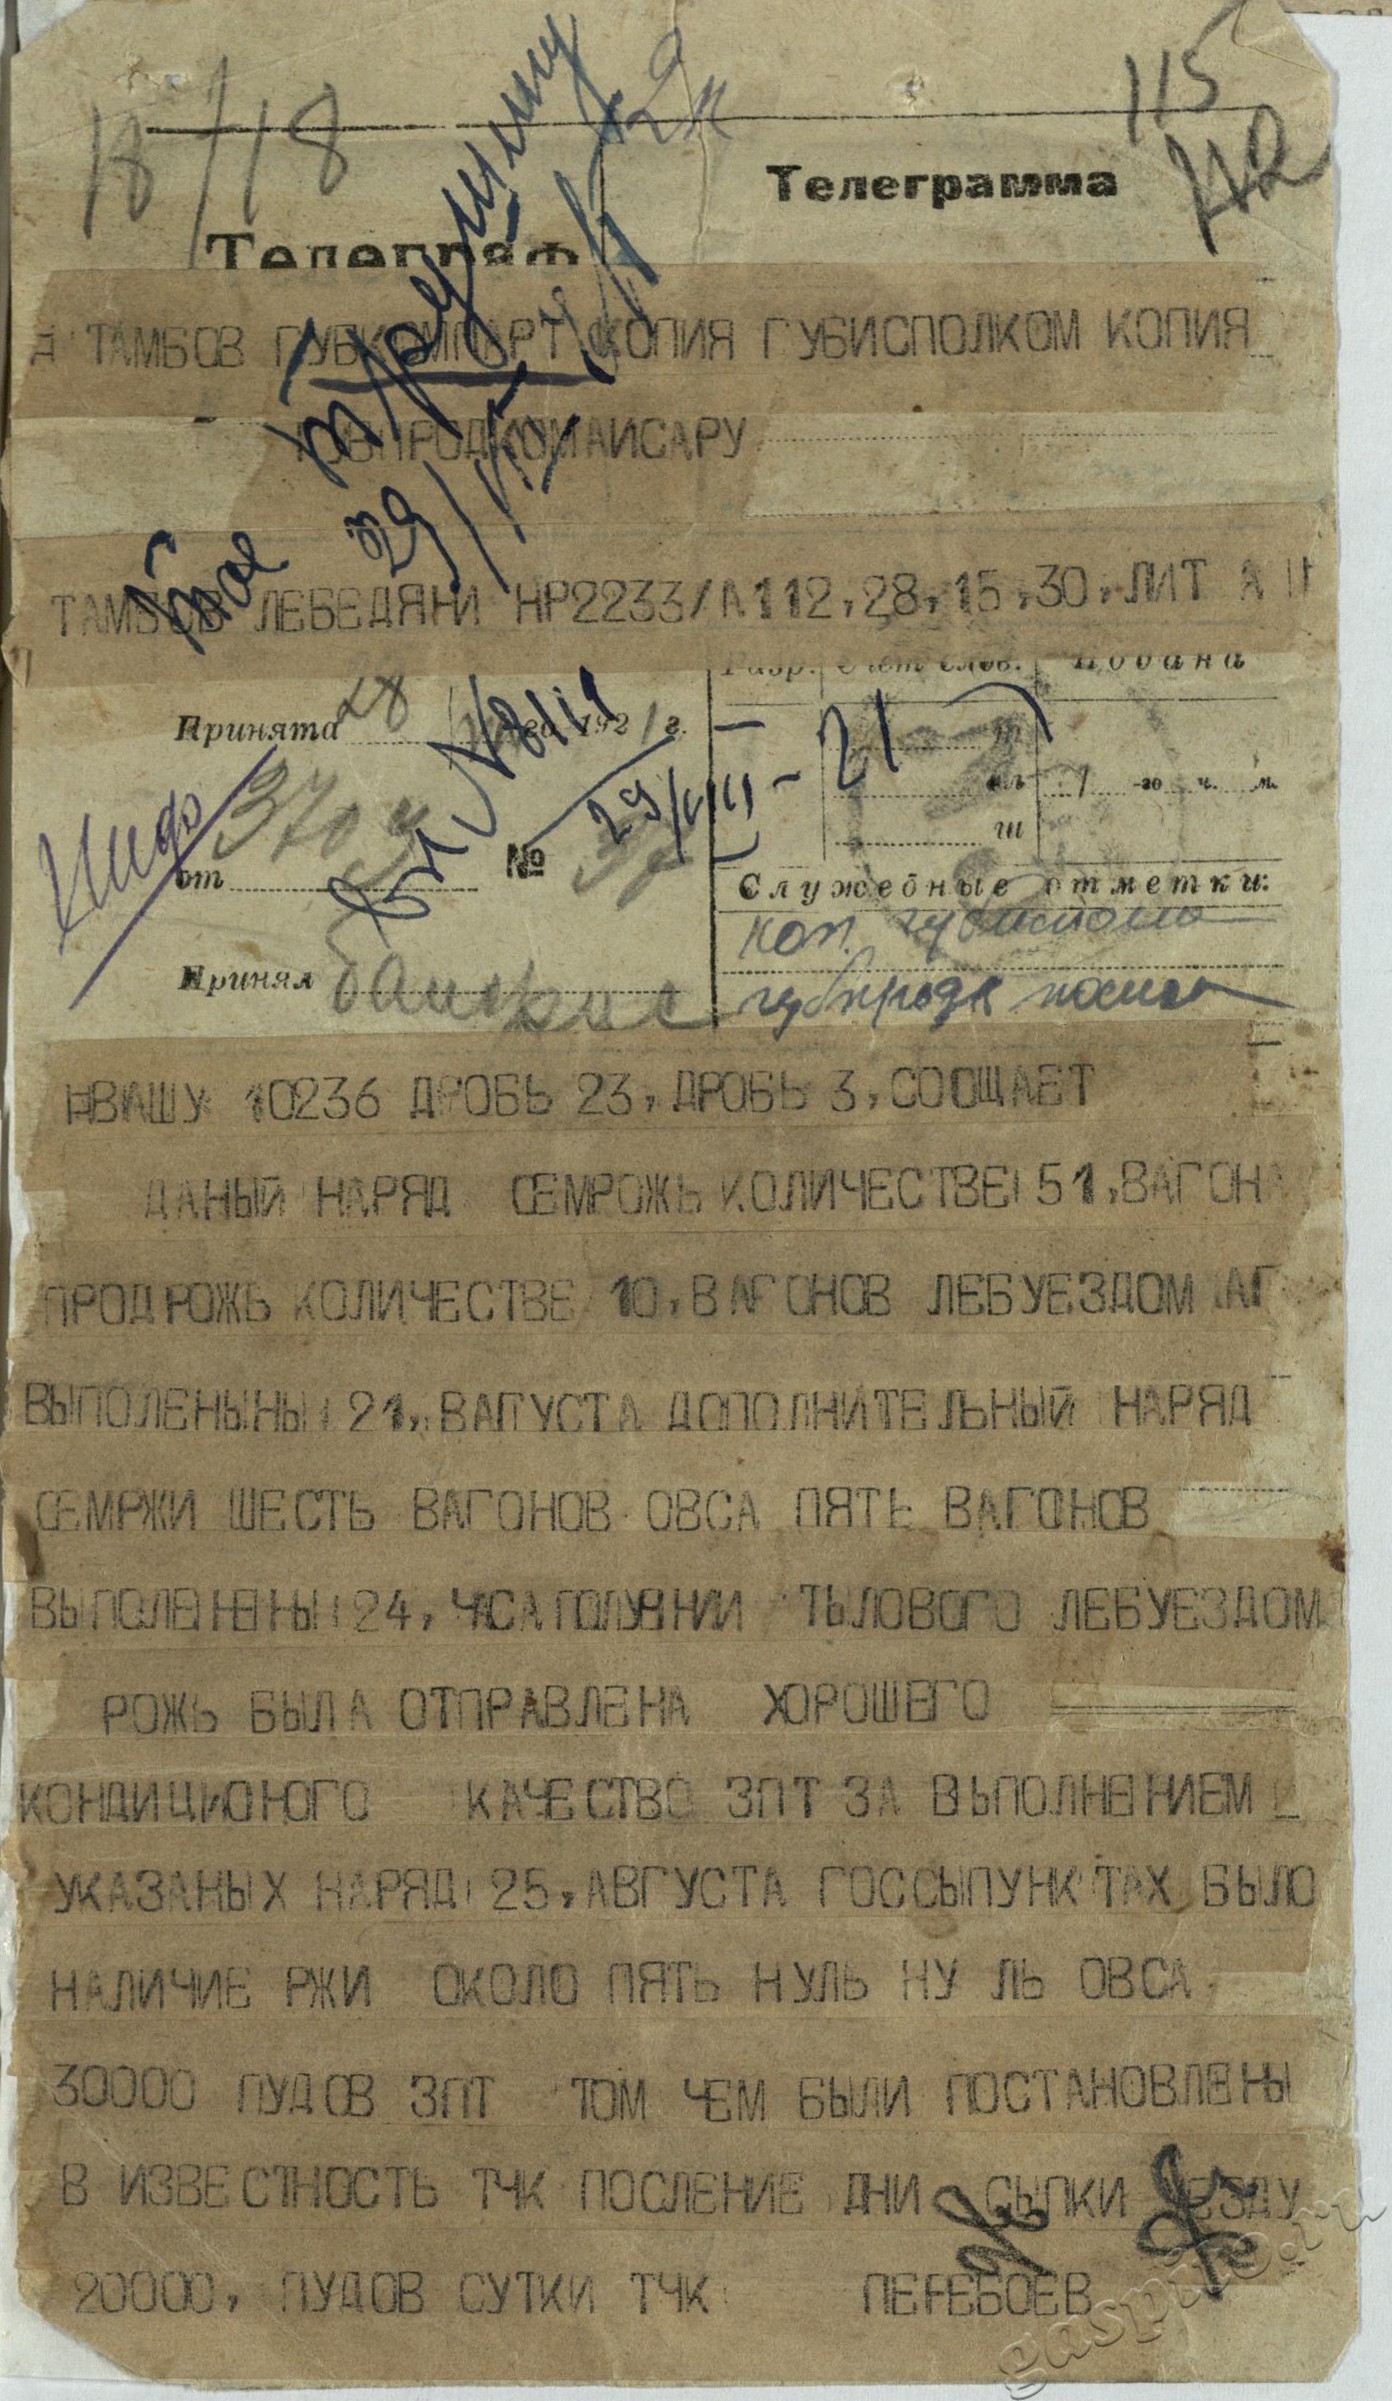 115
112
18/18
Телеграмма
Телеграф
ТАМБОВ ГУБКОМПАРТ КОПИЯ ГУБИСПОЛКОМ КОПИЯ
ГУБПРОДКОМАИСАРУ
29/VIII
ТАМБОВ ЛЕБЕДЯНИ НР2233/А112,28,15,30, ЛИТ А
Разр. Счет слов. Подана
Принята 28 го 1921 г.
21
-го ч. м.
370
Вх № 8111
29/VIII - 21
от № 37
ш
Служебные отметки:
коп. губисполк
Принял
губпродк послан
НВАШУ 10236 ДРОБЬ 23, ДРОБЬ 3, СООЩАЕТ
ДАНЫЙ НАРЯД СЕМРОЖЬ КОЛИЧЕСТВЕ 51, ВАГОН
ПРОДРОЖЬ КОЛИЧЕСТВЕ 10, ВАГОНОВ ЛЕБУЕЗДОМ
ВЫПОЛЕНЫНЫ 21, ВАГУСТА ДОПОЛНИТЕЛЬНЫЙ НАРЯД
СЕМРЖИ ШЕСТЬ ВАГОНОВ ОВСА ПЯТЬ ВАГОНОВ
ВЫПОЛЕНЕНЫ 24, ЧАСА ТЫЛОВОГО ЛЕБУЕЗДОМ
РОЖЬ БЫЛА ОТПРАВЛЕНА ХОРОШЕГО
КОНДИЦИОНОГО КАЧЕСТВО ЗПТ ЗА ВЫПОЛНЕНИЕМ
УКАЗАНЫХ НАРЯД 25, АВГУСТА ГОССЫПУНКТАХ БЫЛО
НАЛИЧИЕ РЖИ ОКОЛО ПЯТЬ НУЛЬ НУ ЛЬ ОВСА
30000 ПУДОВ ЗПТ ТОМ ЧЕМ БЫЛИ ПОСТАНОВЛЕНЫ
В ИЗВЕСТНОСТЬ ТЧК ПОСЛЕНИЕ ДНИ СЫПКИ УЕЗДУ
20000, ПУДОВ СУТКИ ТЧК ПЕРЕБОЕВ
gaspito.ru